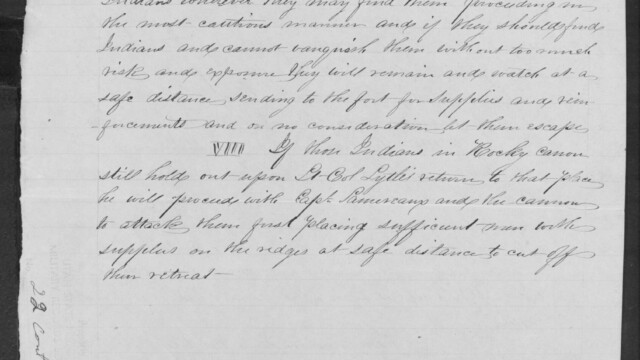 Indians wherever they may find them proceeding in
the most cautious manner and if they should find
Indians and cannot vanquish them without too much
risk and exposure they will remain and watch at a
safe distance, sending to the fort for supplies and rein
forcements and on no consideration let them escape
VIII If those Indians in Rocky canon
still hold out upon Lt Col Lytle's return to that place
he will proceed with Capt and the cannon
to attack them first placing sufficient men with
supplies on the ridges at safe distance to cut off
their retreat